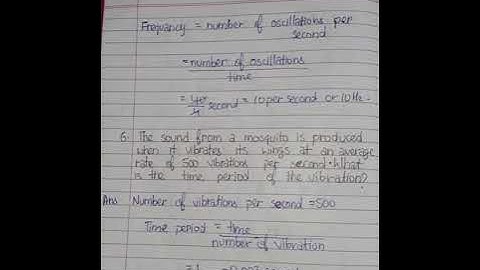 Frequancy = number of oscillations per
second
= number of oscillations
time
= 40/4 second = 10 per second or 10 Hz.
6. The sound from a mosquito is produced
when it vibrates its wings at an average
rate of 500 vibrations per second. What
is the time period of the vibration?
Ans Number of vibrations per second = 500
Time period = time
number of vibration
= 1 = 0.002 second